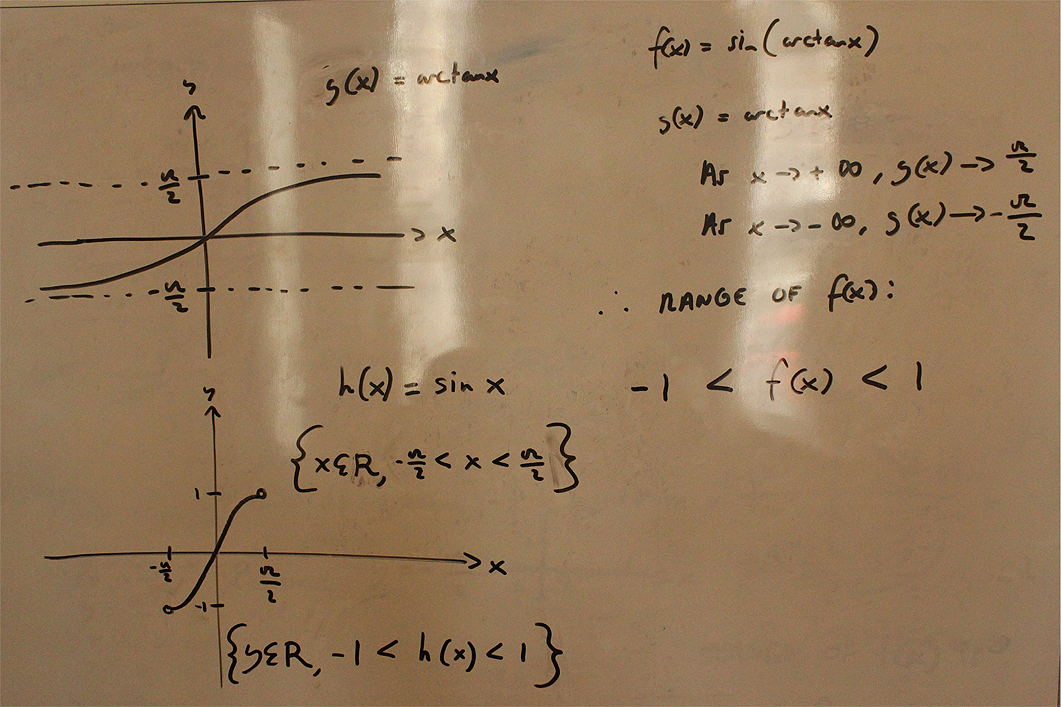 g(x) = arctanx
y
π/2
x
-π/2
h(x) = sin x
y
{x∈R, -π/2 < x < π/2}
1
-π/2
π/2
x
-1
{y∈R, -1 < h(x) < 1}
f(x) = sin(arctanx)
g(x) = arctanx
As x → + ∞, g(x) → π/2
As x → - ∞, g(x) → -π/2
∴ RANGE OF f(x):
-1 < f(x) < 1